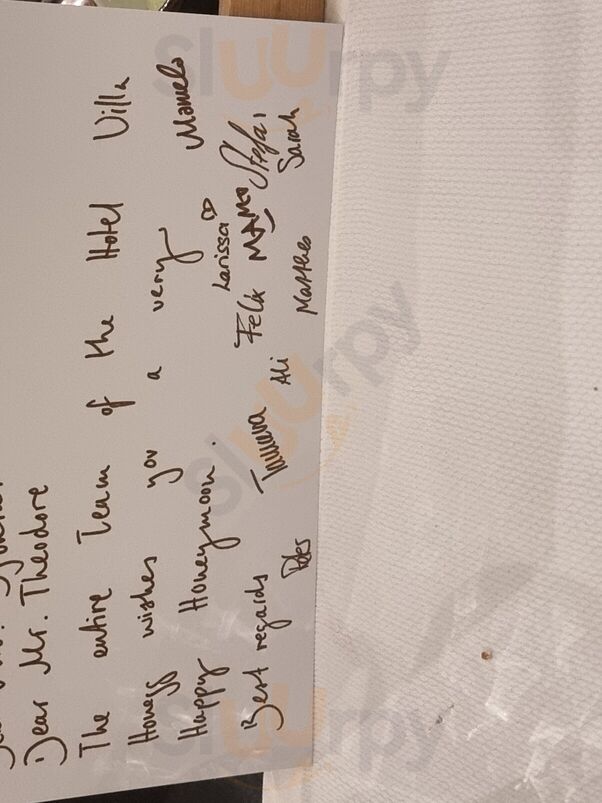 Dear Mr. Theodore
The entire Team of the Hotel Villa
Honegg wishes you a very
Happy Honeymoon.
Best regards
Manuela
Larissa
Felix MARCO Stefan
Tamara Ali Matthes Sarah
sluurpy
sluurpy
sluurpy